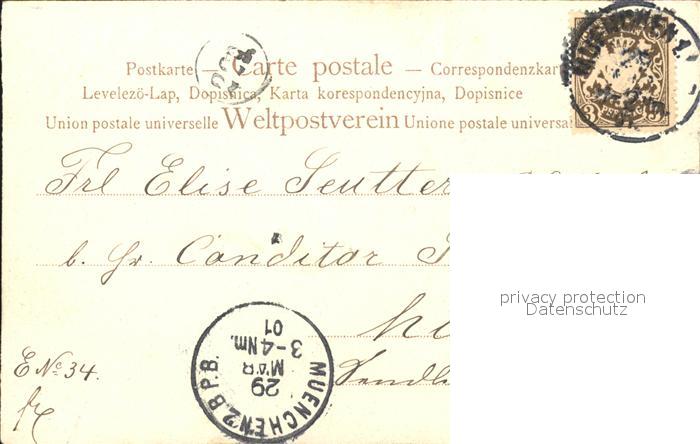 Postkarte — Carte postale — Correspondenzkar
Levelezö-Lap, Dopisnica, Karta korespondencyjna, Dopisnice
Union postale universelle Weltpostverein Unione postale universa
MUENCHEN
3 PFENNIG 3
Frl Elise Seutter
b. Hr. Conditor
privacy protection
Datenschutz
MUENCHEN 2 B.P.B.
29
MAR
3-4 Nm.
01
E No 34.